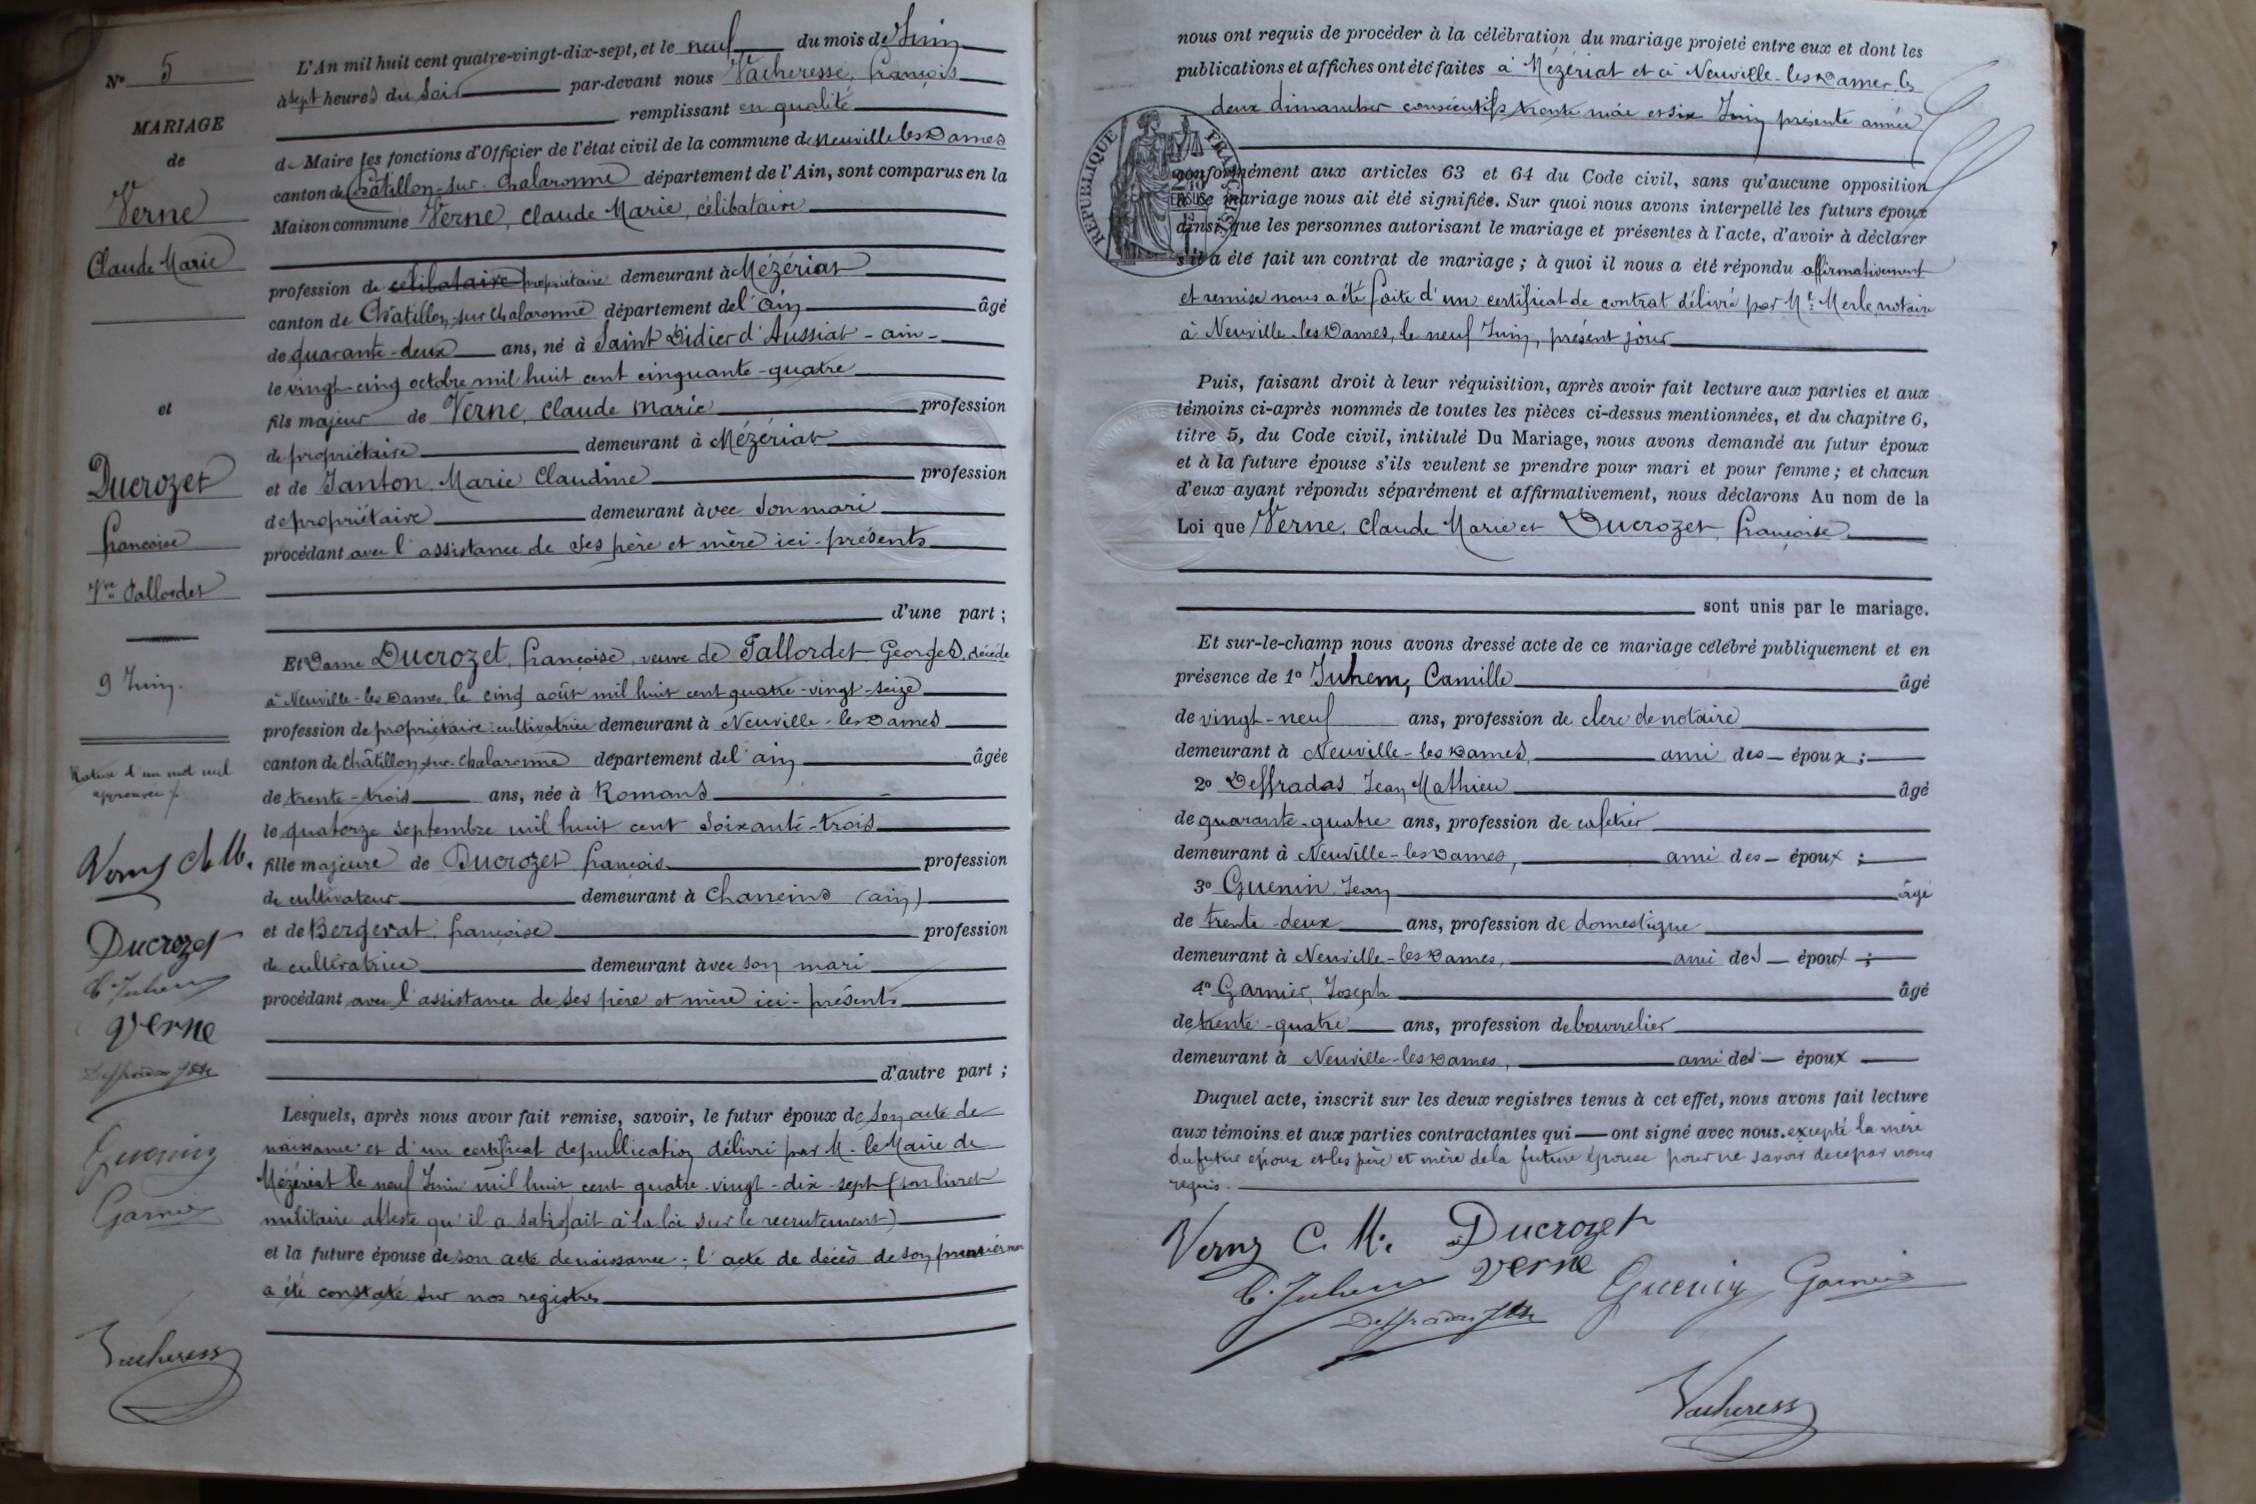 Nº 5
MARIAGE
de
Verne
Claude Marie
et
Ducrozet
françoise
Vve Tallordet
9 Juin.
Rature d'un mot nul
approuvée
Verne C. M.
Ducrozet
C. Juhem
Verne
Deffradas
Guenin
Garnier
Vacheresse
L'An mil huit cent quatre-vingt-dix-sept, et le neuf du mois de Juin
à sept heures du soir par-devant nous Vacheresse, françois
remplissant en qualité
de Maire les fonctions d'Officier de l'état civil de la commune de Neuville les Dames
canton de Châtillon-sur-Chalaronne département de l'Ain, sont comparus en la
Maison commune Verne, Claude Marie, célibataire
profession de célibataire propriétaire demeurant à Mézériat
canton de Châtillon-sur-Chalaronne département de l'ain âgé
de quarante-deux ans, né à Saint Didier d'Aussiat - ain -
le vingt-cinq octobre mil huit cent cinquante-quatre
fils majeur de Verne, Claude Marie profession
de propriétaire demeurant à Mézériat
et de Janton Marie Claudine profession
de propriétaire demeurant avec son mari
procédant avec l'assistance de ses père et mère ici-présents
d'une part ;
Et Dame Ducrozet, françoise, veuve de Tallordet Georges, décédé
à Neuville-les-Dames, le cinq août mil huit cent quatre-vingt-seize
profession de propriétaire-cultivatrice demeurant à Neuville-les-Dames
canton de Châtillon-sur-Chalaronne département de l'ain âgée
de trente-trois ans, née à Romans
le quatorze septembre mil huit cent soixante-trois
fille majeure de Ducrozet françois profession
de cultivateur demeurant à Chaneins (ain)
et de Bergerat, françoise profession
de cultivatrice demeurant avec son mari
procédant avec l'assistance de ses père et mère ici-présents
d'autre part ;
Lesquels, après nous avoir fait remise, savoir, le futur époux de son acte de
naissance et d'un certificat de publication délivré par M. le Maire de
Mézériat le neuf Juin mil huit cent quatre-vingt-dix-sept (son livret
militaire atteste qu'il a satisfait à la loi sur le recrutement)
et la future épouse de son acte de naissance ; l'acte de décès de son premier mari
a été constaté sur nos registres
nous ont requis de procéder à la célébration du mariage projeté entre eux et dont les
publications et affiches ont été faites à Mézériat et à Neuville-les-Dames les
deux dimanches consécutifs trente mai et six Juin présente année
RÉPUBLIQUE FRANÇAISE
conformément aux articles 63 et 64 du Code civil, sans qu'aucune opposition
à ce mariage nous ait été signifiée. Sur quoi nous avons interpellé les futurs époux
ainsi que les personnes autorisant le mariage et présentes à l'acte, d'avoir à déclarer
s'il a été fait un contrat de mariage ; à quoi il nous a été répondu affirmativement
et remise nous a été faite d'un certificat de contrat délivré par Me Merle, notaire
à Neuville-les-Dames, le neuf Juin, présent jour
Puis, faisant droit à leur réquisition, après avoir fait lecture aux parties et aux
témoins ci-après nommés de toutes les pièces ci-dessus mentionnées, et du chapitre 6,
titre 5, du Code civil, intitulé Du Mariage, nous avons demandé au futur époux
et à la future épouse s'ils veulent se prendre pour mari et pour femme ; et chacun
d'eux ayant répondu séparément et affirmativement, nous déclarons Au nom de la
Loi que Verne, Claude Marie et Ducrozet, françoise
sont unis par le mariage.
Et sur-le-champ nous avons dressé acte de ce mariage célébré publiquement et en
présence de 1º Juhem, Camille âgé
de vingt-neuf ans, profession de clerc de notaire
demeurant à Neuville-les-Dames, ami des époux ;
2º Deffradas Jean Mathieu âgé
de quarante-quatre ans, profession de cafetier
demeurant à Neuville-les-Dames, ami des époux ;
3º Guenin Jean âgé
de trente-deux ans, profession de domestique
demeurant à Neuville-les-Dames, ami des époux ;
4º Garnier, Joseph âgé
de trente-quatre ans, profession de bourrelier
demeurant à Neuville-les-Dames, ami des époux
Duquel acte, inscrit sur les deux registres tenus à cet effet, nous avons fait lecture
aux témoins et aux parties contractantes qui ont signé avec nous. excepté la mère
du futur époux et les père et mère de la future épouse pour ne savoir de ce par nous
requis.
Verne C. M. Ducrozet
C. Juhem Verne Guenin Garnier
Deffradas
Vacheresse